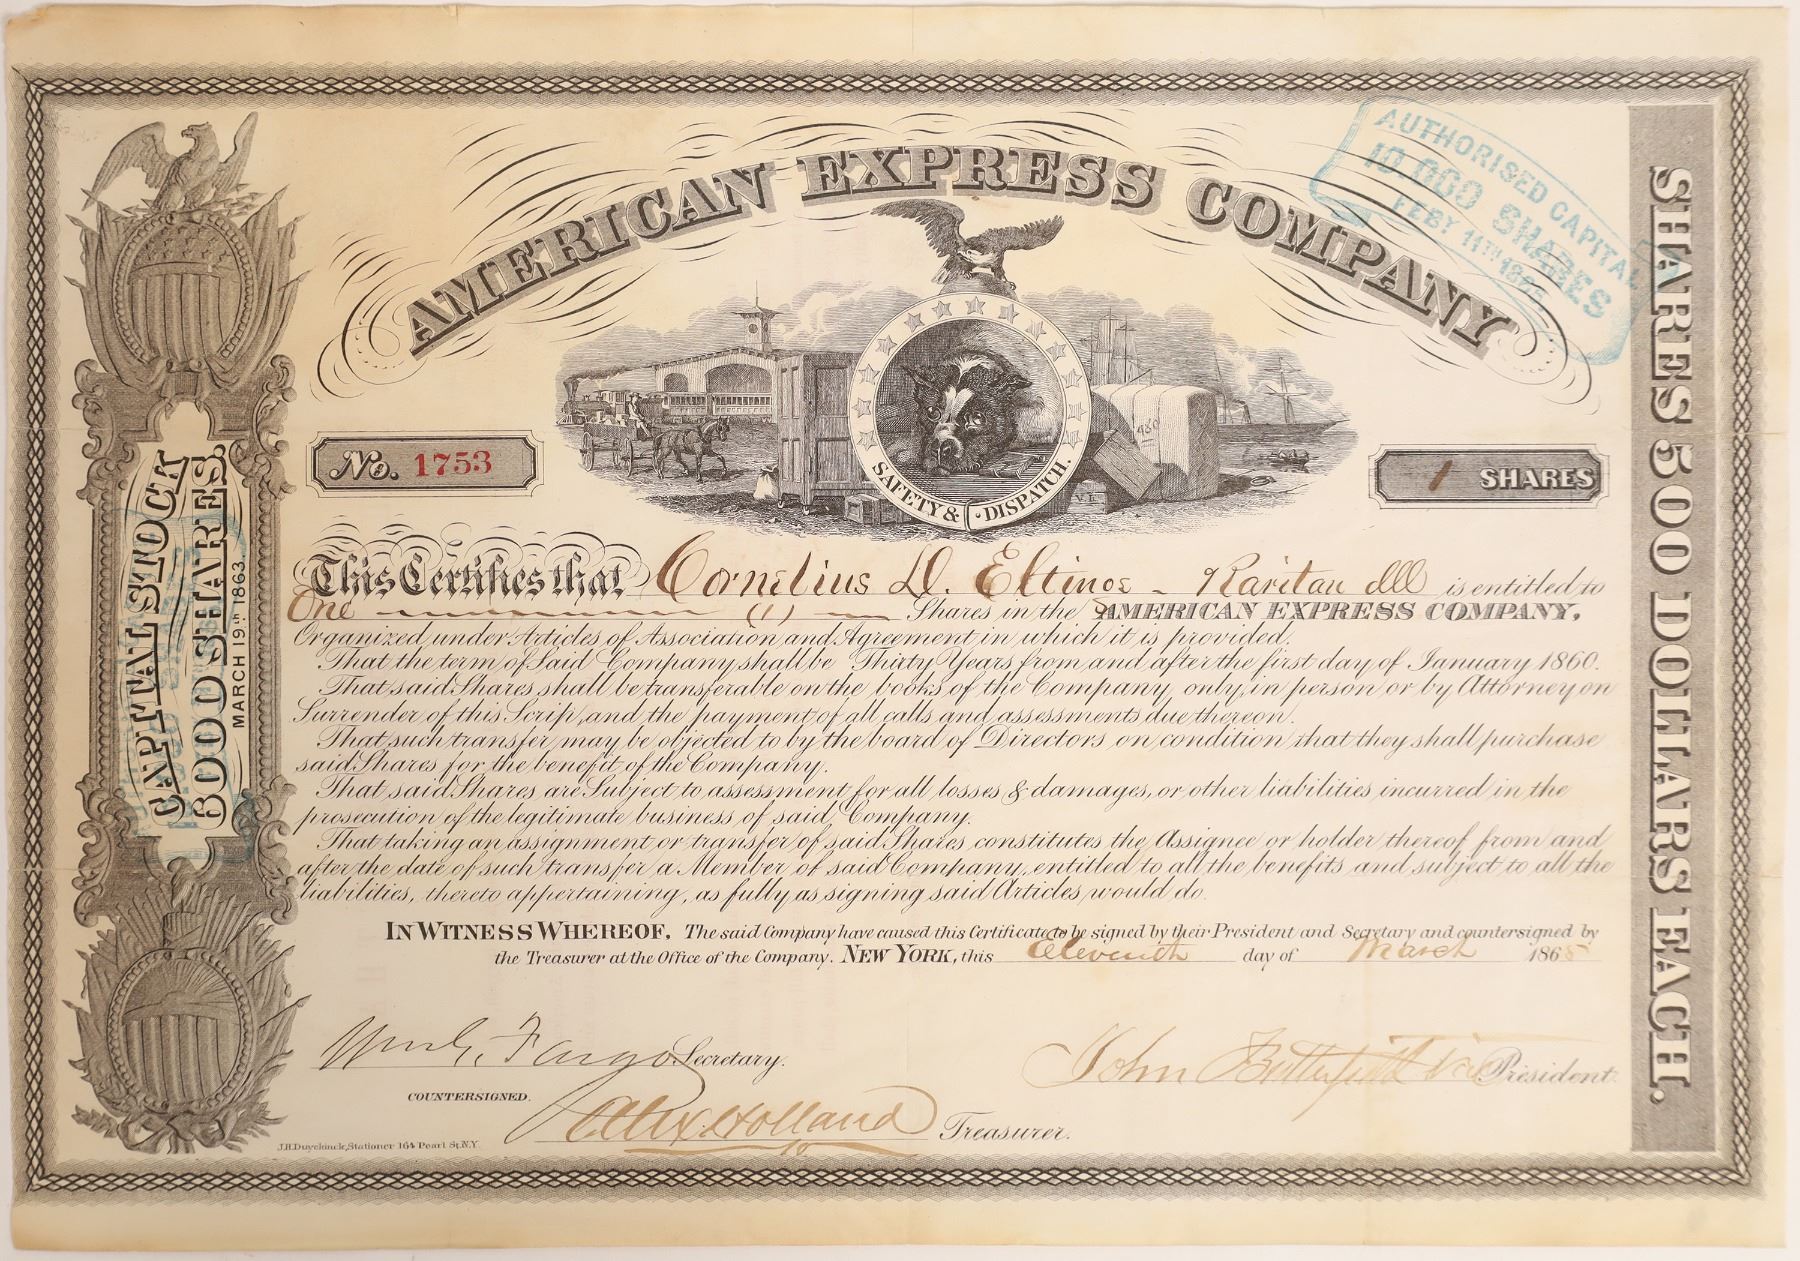 AMERICAN EXPRESS COMPANY
AUTHORISED CAPITAL
10.000 SHARES
FEBY 11TH 1865
No. 1753
SAFETY & DISPATCH.
1 SHARES
CAPITAL STOCK
6000 SHARES.
MARCH 19th 1863.
SHARES 500 DOLLARS EACH.
This Certifies that Cornelius D. Eltinge - Raritan Ill is entitled to
One (1) Shares in the AMERICAN EXPRESS COMPANY,
Organized under Articles of Association and Agreement in which it is provided.
That the term of Said Company shall be Thirty Years from and after the first day of January 1860.
That said Shares shall be transferable on the books of the Company, only in person or by Attorney on
Surrender of this Scrip, and the payment of all calls and assessments due thereon.
That such transfer may be objected to by the board of Directors on condition that they shall purchase
said Shares for the benefit of the Company.
That said Shares are Subject to assessment for all losses & damages, or other liabilities incurred in the
prosecution of the legitimate business of said Company.
That taking an assignment or transfer of said Shares constitutes the Assignee or holder thereof from and
after the date of such transfer a Member of said Company, entitled to all the benefits and subject to all the
liabilities, thereto appertaining, as fully as signing said Articles would do.
IN WITNESS WHEREOF, The said Company have caused this Certificate to be signed by their President and Secretary and countersigned by
the Treasurer at the Office of the Company. NEW YORK, this Eleventh day of March 1865
Wm G. Fargo Secretary.
John Butterfield Vice President.
COUNTERSIGNED.
Alex. Holland Treasurer.
J.H. Duyckinck, Stationer 164 Pearl St. N.Y.